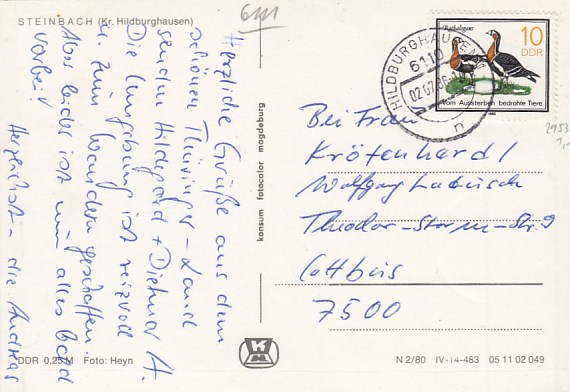 STEINBACH (Kr. Hildburghausen)
6111
Herzliche Grüße aus dem
schönen Thüringer-Land
senden Hildegard + Dietmar A.
Die Umgebung ist reizvoll
u. zum Wandern geschaffen.
Aber leider ist nun alles bald
vorbei!
Herzlichst - die
DDR 0,25 M Foto: Heyn
konsum fotocolor magdeburg
KM
HILDBURGHAUSEN
6110
02.07.86
n
Rothalsgans
10
DDR
Vom Aussterben bedrohte Tiere
1985
2953
1,-
Bei Frau
Krötenhardt
Wolfgang
Theodor-Storm-Str. 9
Cottbus
7500
N 2/80 IV-14-483 05 11 02 049